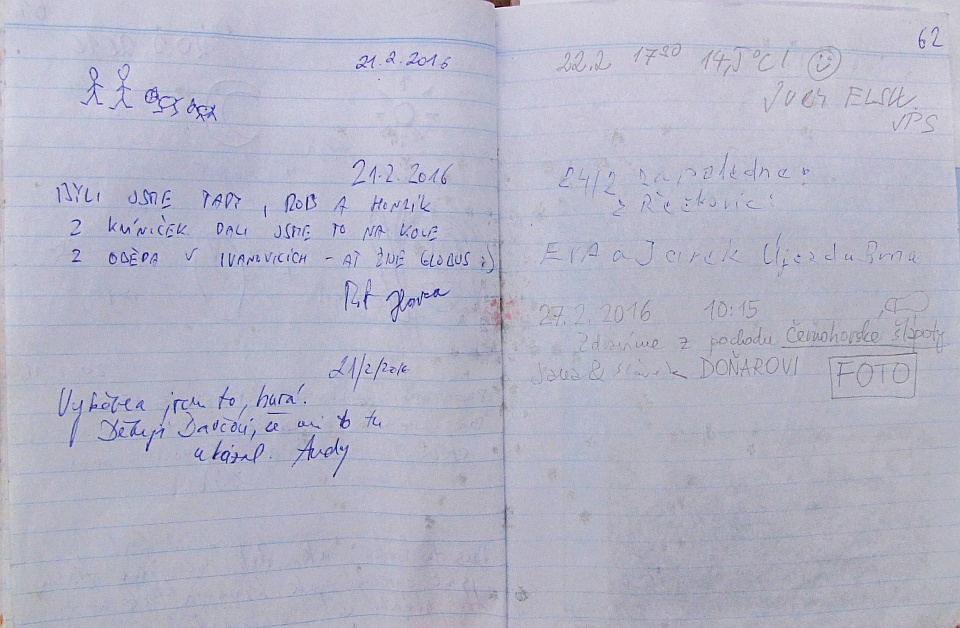 21.2.2016
21.2.2016
BYLI JSME TADY, ROB A HONZÍK
Z KNÍNIČEK DALI JSME TO NA KOLE
Z OBĚDA V IVANOVICÍCH - AŤ ŽIJE GLOBUS :)
21/2/2016
Vyběhla jsem to, hurá!
Děkuji Davidovi, že mi to tu
ukázal. Andy
62
22.2 17³⁰ 14,5°C!
24/2 za poledne:
z Řečkovic:
EVA a Jarek Újezd u Brna
27.2.2016 10:15
Zdravíme z pochodu Černohorské šlápoty
Jana & DOŇAROVI FOTO